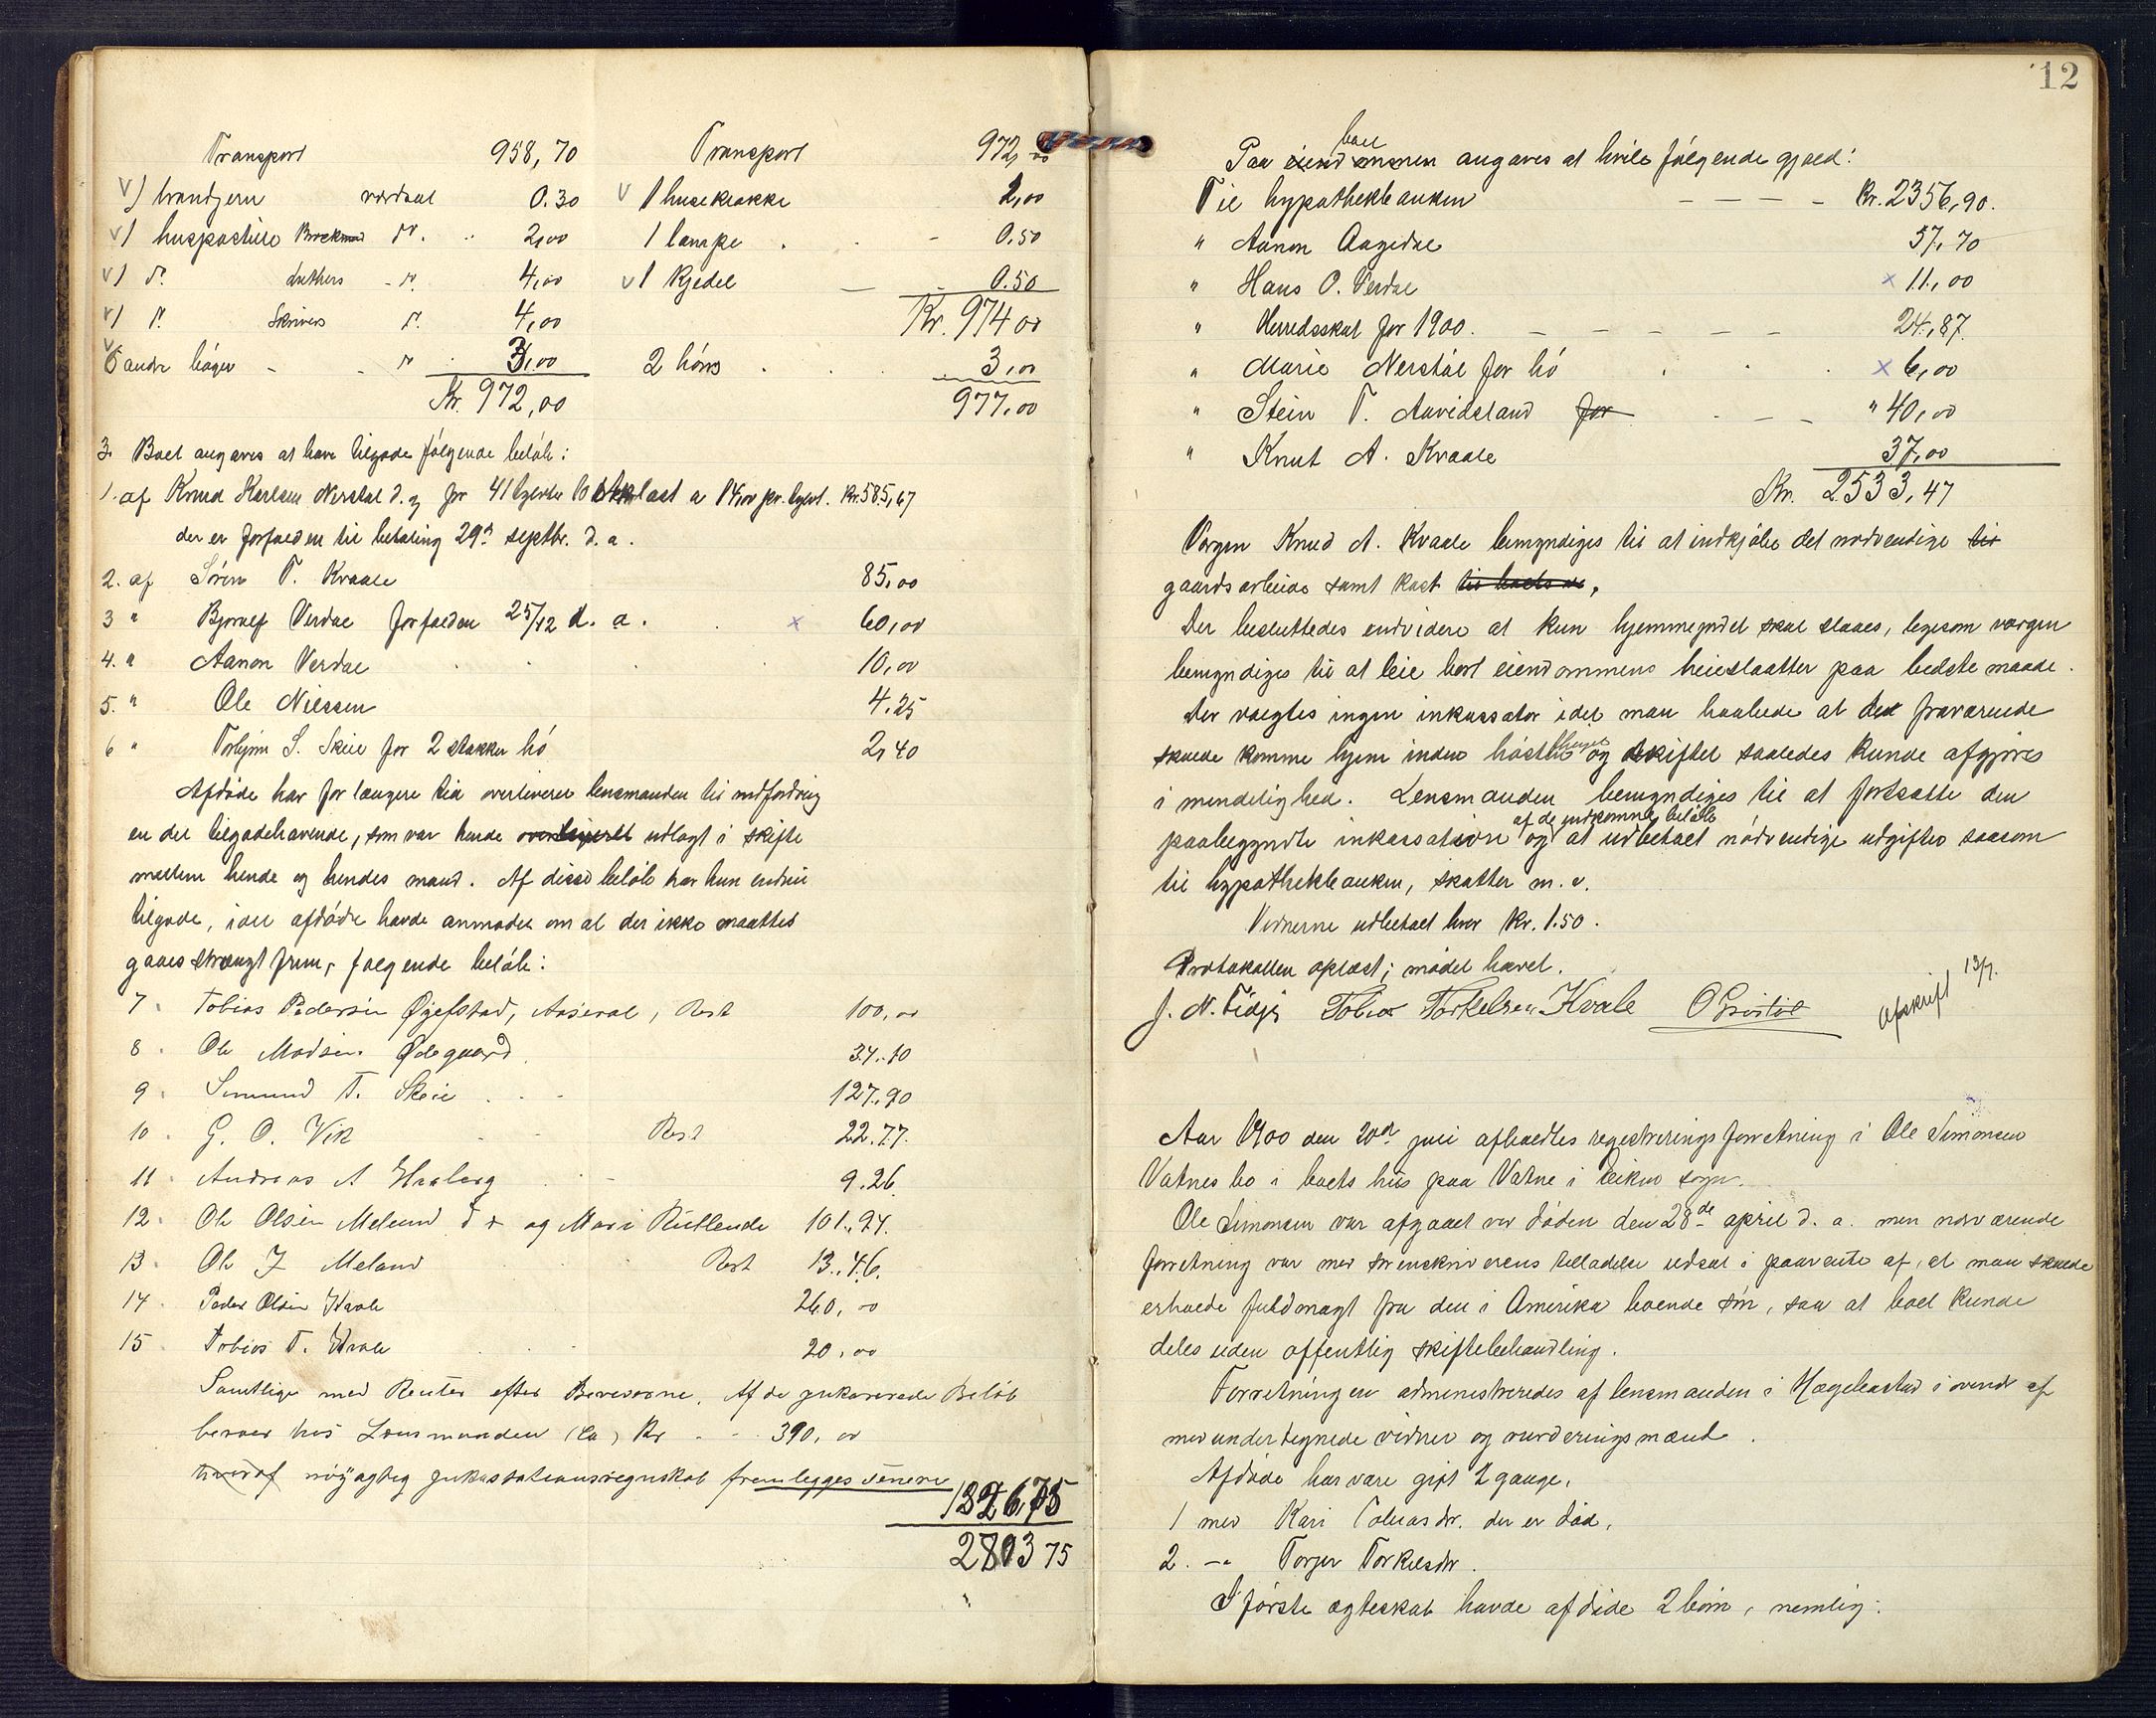 Transport 958,70
1 brandjern værdsat 0.30
1 huspostille Brockmand do. 2,00
1 do. Luthers - do. 4,00
1 do. Skrivers do. 4,00
6 andre bøger - - do 3,00
Kr. 972,00
Transport 972,00
1 husekrakke 1,00
1 lampe . . - 0,50
1 Kjedel — 0.50
Kr. 974 00
2 høns . . . 3,00
977,00
3. Boet angaves at have tilgode følgende beløb:
1. af Knud Karlsen Nerstøl d. y for 41 tylvter last a 14,00 pr. tylvt. Kr. 585,67
der er forfalden til betaling 29de septbr. d. a.
2. af Søren T. Kvaale 85,00
3 " Bjornlf Verdal forfalden 25/12 d. a. . x 60,00
4. " Aanon Verdal 10,00
5. " Ole Nielsen 4.25
6 " Torbjørn S. Skeie for 2 stakker hø 2,40
Afdøde har for længere tid overleveret lensmanden til indfordring
en del tilgodehavende, som var hende overleveret udlagt i skifte
mellem hende og hendes mand. Af disse beløb har hun endnu
tilgode, idet afdøde havde anmodet om at der ikke maattes
gaaes strængt frem, følgende beløb:
7. Tobias Pedersen Øgefstad, Aaseral, Rest 100,00
8. Ole Madsen Ødegaard 34.10
9. Simund T. Skeie . . - 127.90
10. G. O. Vik - - Rest 22.77.
11. Andreas A Haaberg 9.26.
12. Ole Olsen Meland d æ og Mari Rutlende 101.94.
13. Ole J Meland Rest 13.46.
14. Peder Olsen Kvale 260,00
15. Tobias T. Kvale 20,00
Samtlige med Renter efter Beviserne. Af de inkasserede Beløb
beroer hos Lensmanden (ca) Kr - - 390,00
hvoraf nøyagtig inkassationsregnskab fremlegges senere
1826,75
2803 75
12
Paa eiendommen boet angaves at hvile følgende gjæld:
Til hypothekbanken - - - - Kr. 2356,90.
" Aanon Aagedal 57,70
" Hans O. Verdal x 11,00
" Herredsskat for 1900. - - - - - 24,87.
" Marie Nerstøl for hø . . . x 6,00
" Stein T. Auvidsland for . - - " 40,00
" Knut A. Kvaale 37,00
Kr. 2533,47
Værgen Knud A. Kvaale bemyndiges til at indkjøbe det nødvendige til
gaardsarbeide samt kost til boets,
Der besluttedes endvidere at kun hjemmejordet skal slaaes, ligesom værgen
bemyndiges til at leie bort eiendommens heieslaatter paa bedste maade.
Der valgtes ingen inkassator idet man haabede at den fraværende
skulde komme hjem inden høsten og skiftet saaledes kunde afgjøres
i mindelighed. Lensmanden bemyndiges til at fortsætte den
paabegyndte inkassation og af de indkomne beløb at udbetale nødvendige udgifter saasom
til hypothekbanken, skatter m. v.
Vidnerne udbetalt hver Kr. 1.50.
Protokollen oplæst; mødet hævet.
J. N. Fidje Tobias Torkelsen Kvale O Grøstøl
Afskrift 13/7.
Aar 1900 den 20de juli afholdtes registreringsforretning i Ole Simonsen
Vatnes bo i boets hus paa Vatne i Eiken sogn.
Ole Simonsen var afgaaet ved døden den 28de april d. a. men nærværende
forretning var med sorenskriverens tilladelse udsat i paavente af, at man skulde
erholde fuldmagt fra den i Amerika boende søn, saa at boet kunde
deles uden offentlig skiftebehandling.
Forretningen administreredes af lensmanden i Hægebostad i overvær af
med undertegnede vidner og vurderingsmænd.
Afdøde har være gift 2 gange.
1 med Kari Tobiasdr. der er død,
2. -"- Torjer Torkelsdr.
I første ægteskab havde afdøde 2 børn, nemlig: